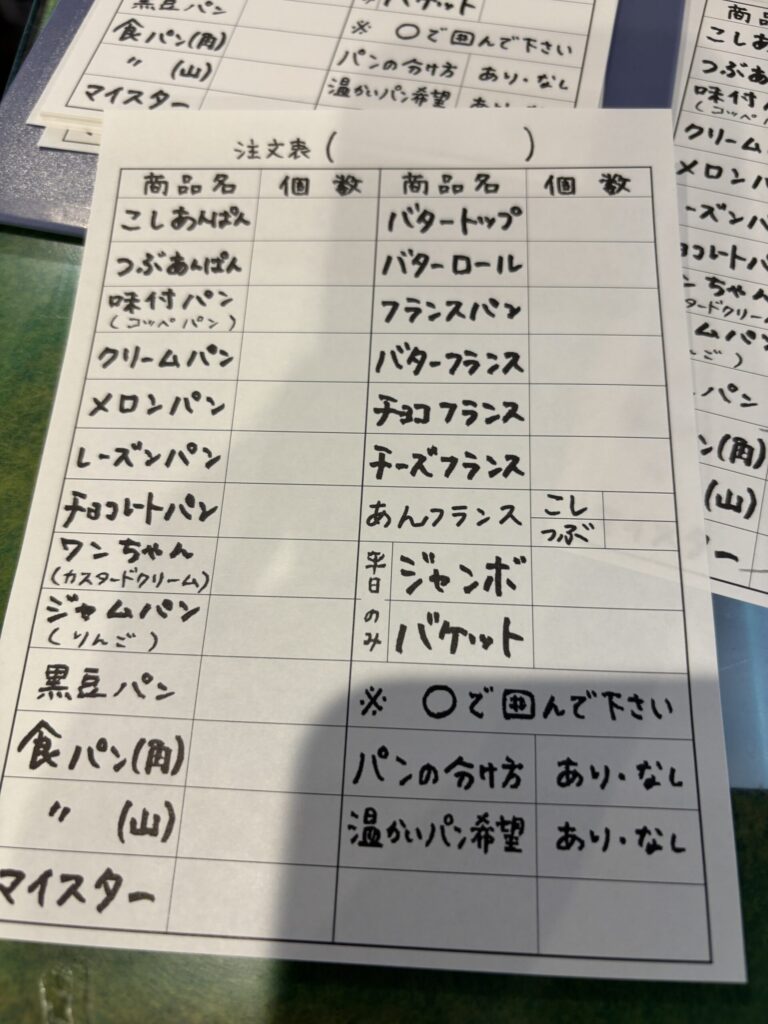 黒豆パン
バケット
食パン(角)
※ 〇で囲んで下さい
〃 (山)
パンの分け方 あり・なし
マイスター
温かいパン希望
注文表( )
商品名 個数 商品名 個数
こしあんぱん バタートップ
つぶあんぱん バターロール
味付パン フランスパン
(コッペパン)
クリームパン バターフランス
メロンパン チョコフランス
レーズンパン チーズフランス
チョコレートパン あんフランス こし
つぶ
ワンちゃん 平日のみ ジャンボ
(カスタードクリーム)
ジャムパン バケット
(りんご)
黒豆パン ※ 〇で囲んで下さい
食パン(角) パンの分け方 あり・なし
〃 (山) 温かいパン希望 あり・なし
マイスター
商品
こしあ
つぶあ
味付パ
(コッペパ
クリーム
メロンパ
ーズンパ
ョコレートパ
ンちゃん
タードクリーム
ムパン
んご)
パン
ン(角)
(山)
ター